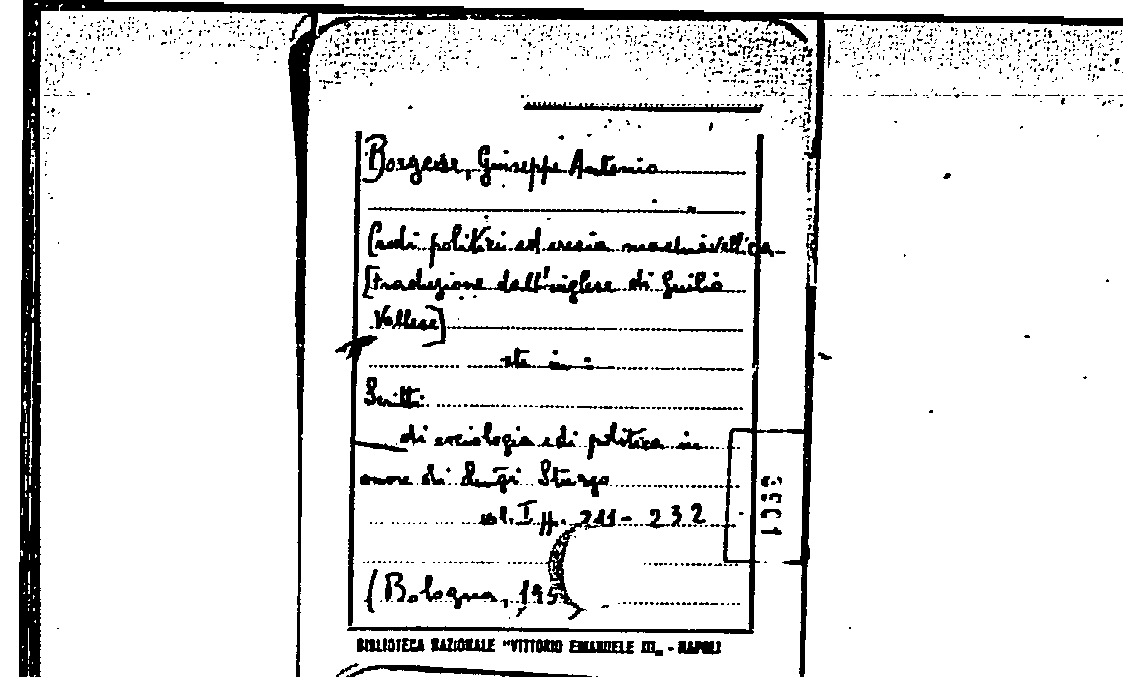 Borgese, Giuseppe Antonio
Credi politici ed eresia machiavellica
[traduzione dall'inglese di Giulio
Vallese]
sta in:
Scritti
di sociologia e di politica in
onore di Luigi Sturzo
vol. I pp. 211-232
(Bologna, 195
BIBLIOTECA NAZIONALE "VITTORIO EMANUELE III„ - NAPOLI